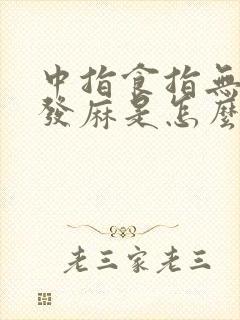 中指食指無
發麻是怎麼
老三家老三